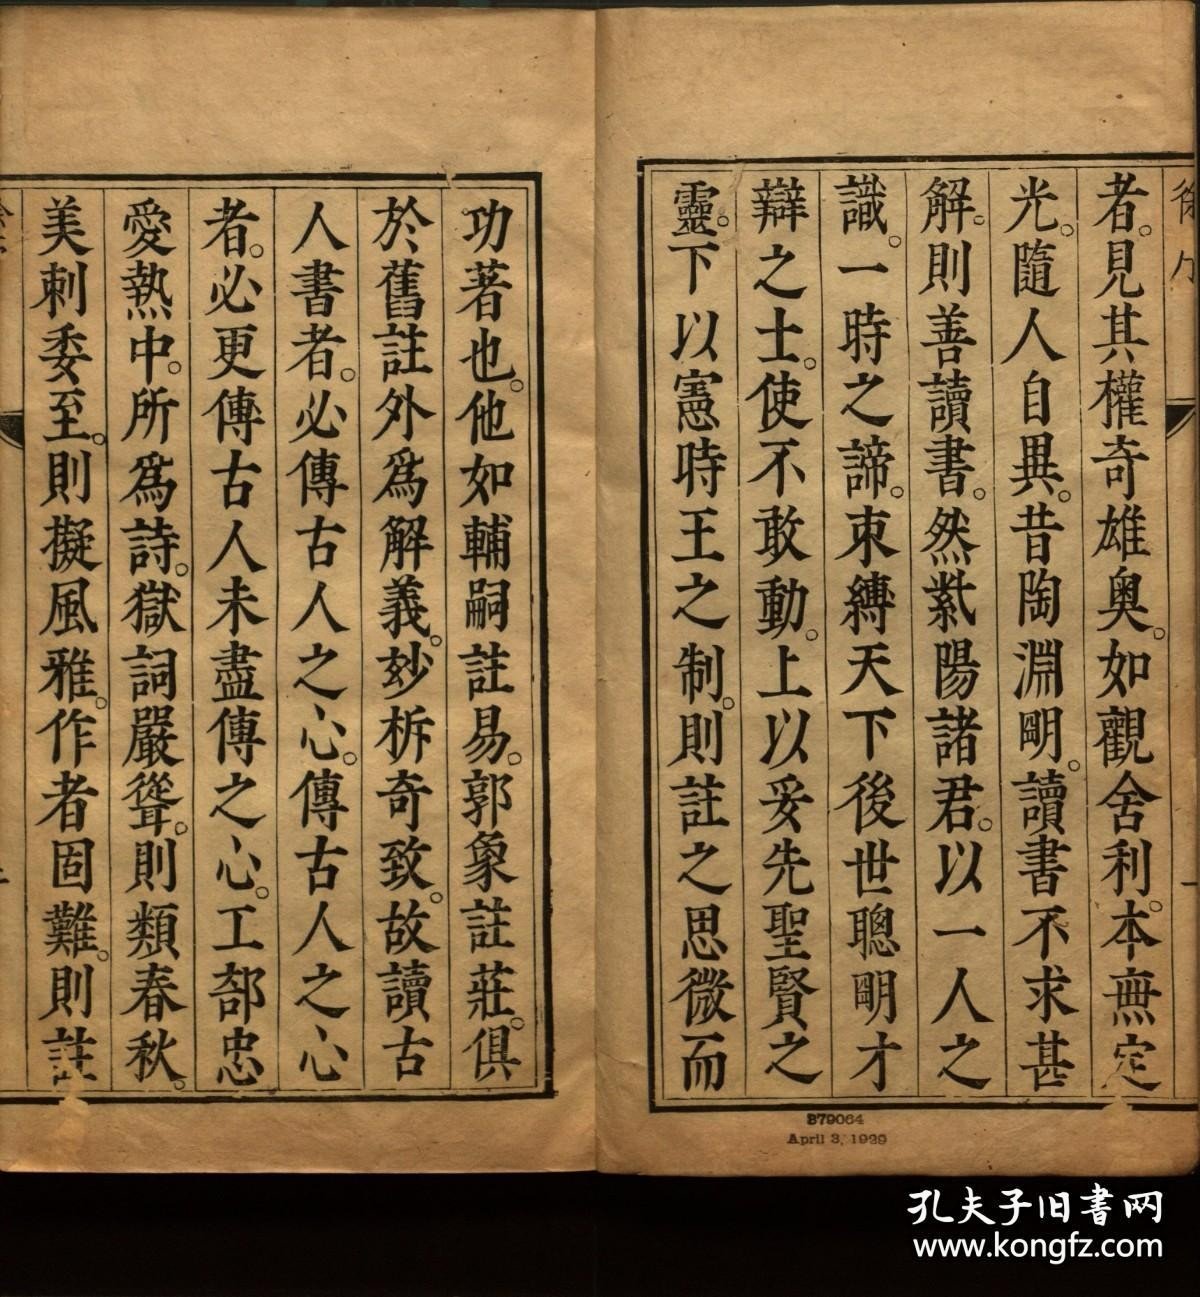 者。見其權奇雄奧。如觀舍利。本無定
光。隨人自異。昔陶淵明。讀書不求甚
解。則善讀書。然紫陽諸君。以一人之
識。一時之諦。束縛天下後世聰明才
辯之士。使不敢動。上以妥先聖賢之
靈。下以憲時王之制。則註之思微而
功著也。他如輔嗣註易。郭象註莊。俱
於舊註外爲解義。玅柝奇致。故讀古
人書者。必傳古人之心。傳古人之心
者。必更傳古人未盡傳之心。工部忠
愛熱中。所爲詩。獄詞嚴聳。則類春秋。
美刺委至。則擬風雅。作者固難。則註
379064
April 3, 1929
孔夫子旧书网
www.kongfz.com